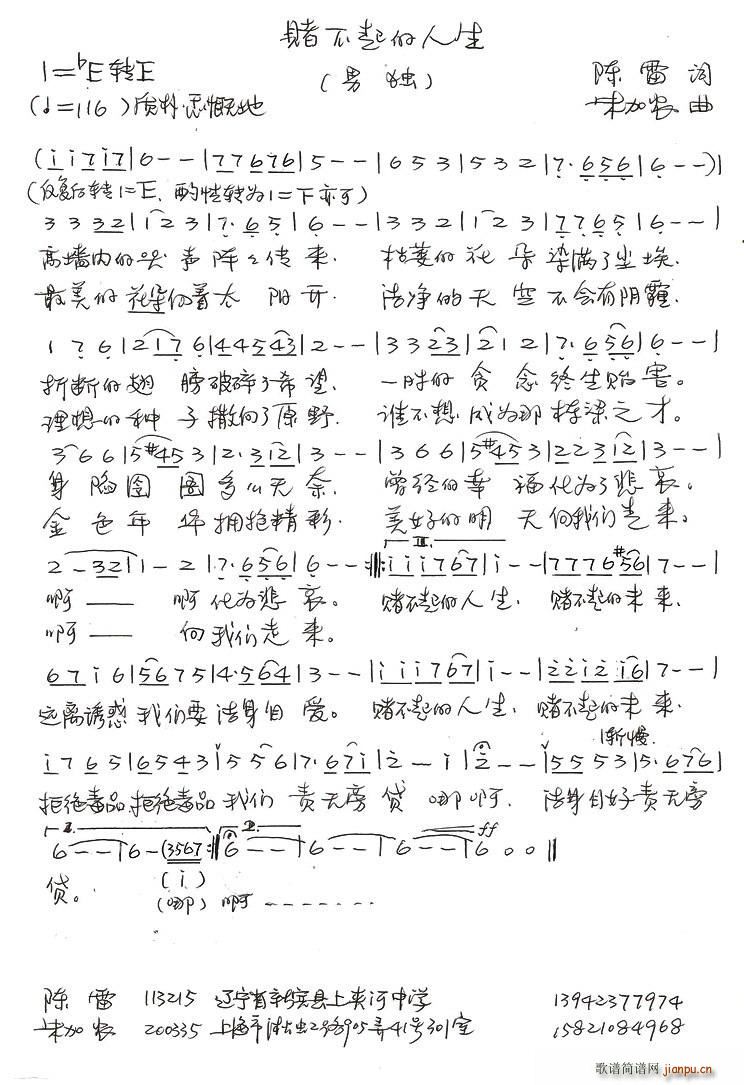 赌不起的人生
1=♭E转E
(男 独)
陈雷 词
(♩=116)质朴.感慨地
宋加农 曲
(i i 7 i 7 | 6 - - | 7 7 6 7 6 | 5 - - | 6 5 3 | 5 3 2 | 7· 6 5 6 | 6 - - ) |
(反复后转1=E,酌情转为1=F亦可)
3 3 3 2 | 1 2 3 | 7· 6 5 | 6 - - | 3 3 2 | 1 2 3 | 7 7 6 5 | 6 - - |
高墙内的哭声阵々传来. 枯萎的花朵染满了尘埃.
最美的花朵向着太阳开. 洁净的天空不会有阴霾.
1 7 6 | 2 1 7 6 | 4 4 5 4 3 | 2 - - | 3 3 2 3 | 2 1 2 | 7· 6 5 6 | 6 - - |
折断的翅膀破碎了希望. 一时的贪念终生贻害。
理想的种子撒向了原野. 谁不想成为那栋梁之才。
3 6 6 | 5 #4 5 3 | 2· 3 1 2 | 3 - - | 3 6 6 | 5 #4 5 3 | 2 2 3 1 2 | 3 - - |
身陷囹圄多么无奈. 曾经的幸福化为了悲哀。
金色年华拥抱精彩. 美好的明天向我们走来。
2 - 3 2 | 1 - 2 | 7· 6 5 6 | 6 - - :‖: i i i 7 6 7 | i - - | 7 7 7 6 #5 6 | 7 - - |
啊—— 啊化为悲哀。 赌不起的人生, 赌不起的未来.
啊—— 向我们走来。
6 7 i 6 | 5 6 7 5 | 4· 5 6 4 | 3 - - | i i i 7 6 7 | i - - | 2 2 i 2 i 6 | 7 - - |
远离诱惑我们要洁身自爱。 赌不起的人生, 赌不起的未来.
渐慢.
i 7 6 5 | 6 5 4 3 | i 5 5 6 | 7· 6 7 i | 2 - i | 2 - - | 5 5 5 3 | 5· 6 7 6 |
拒绝毒品拒绝毒品我们责无旁贷哪啊. 洁身自好责无旁
6 - - | 6 - (3567 :‖ 6 - - | 6 - - | 6 - - | 6 0 0 ‖
ff
贷。
(i)
(哪) 啊 - - - - - - -
陈雷 113215 辽宁省新宾县上夹河中学 13942377974
宋加农 200335 上海市 905弄41号301室 15821084968
歌谱简谱网
jianpu.cn